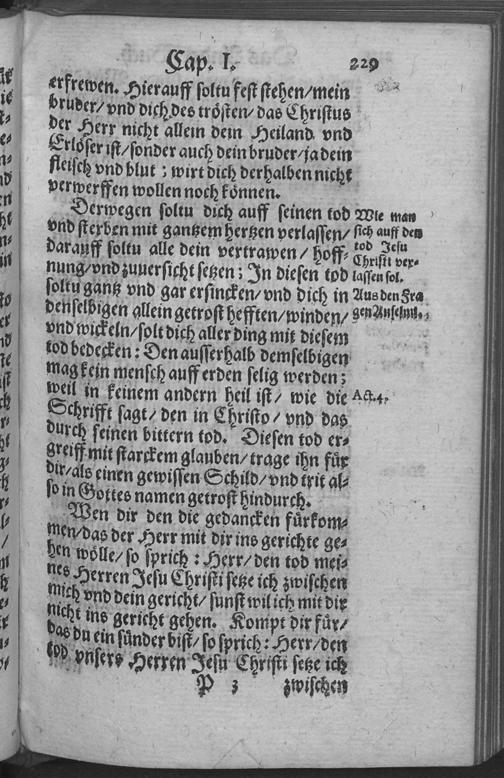 Cap. I. 229
erfrewen. Hierauff soltu fest stehen/mein
bruder/vnd dich des trösten/das Christus
der Herr nicht allein dein Heiland vnd
Erlöser ist/sonder auch dein bruder/ja dein
fleisch vnd blut; wirt dich derhalben nicht
verwerffen wollen noch können.
Derwegen soltu dich auff seinen tod
vnd sterben mit gantzem hertzen verlassen/
darauff soltu alle dein vertrawen/hoff-
nung/vnd zuuersicht setzen; In diesen tod
soltu gantz vnd gar ersincken/vnd dich in
denselbigen allein getrost hefften/winden/
vnd wickeln/solt dich aller ding mit diesem
tod bedecken: Den ausserhalb demselbigen
mag kein mensch auff erden selig werden;
weil in keinem andern heil ist/wie die
Schrifft sagt/den in Christo/vnd das
durch seinen bittern tod. Diesen tod er-
greiff mit starckem glauben/trage ihn für
dir/als einen gewissen Schild/vnd trit al-
so in Gottes namen getrost hindurch.
Wen dir den die gedancken fürkom-
men/das der Herr mit dir ins gerichte ge-
hen wölle/so sprich: Herr/den tod mei-
nes Herren Jesu Christi setze ich zwischen
mich vnd dein gericht/sunst wil ich mit dir
nicht ins gericht gehen. Kompt dir für/
das du ein sünder bist/so sprich: Herr/den
tod vnsers Herren Jesu Christi setze ich
P 3 zwischen
Wie man
sich auff den
tod Jesu
Christi ver-
lassen sol.
Aus den Fra
gen Anselmi.
Act. 4.